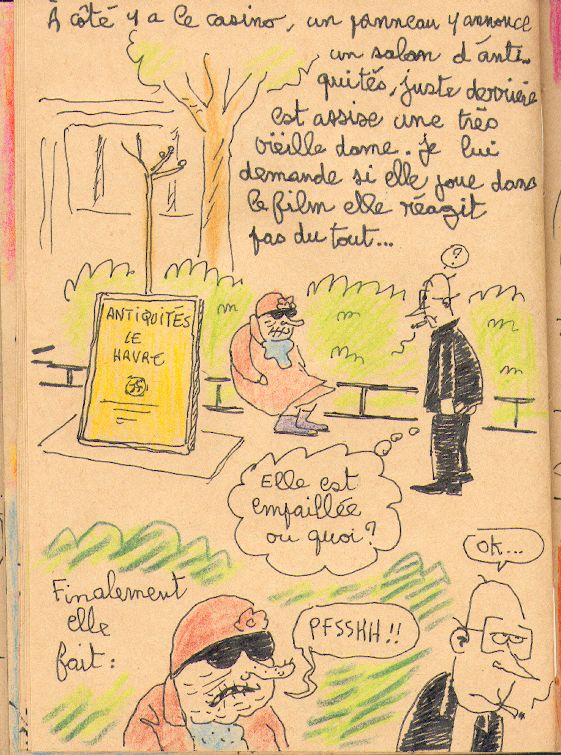 À côté y a le casino, un panneau y annonce
un salon d'anti-
quités, juste derrière
est assise une très
vieille dame. je lui
demande si elle joue dans
le film elle réagit
pas du tout...
?
ANTIQUITÉS
LE
HAVRE
Elle est
empaillée
ou quoi?
OK...
Finalement
elle
fait:
PFSSHH!!